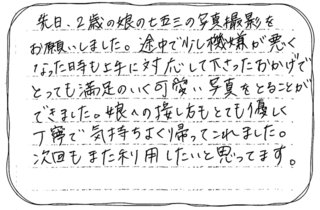 先日、2歳の娘の七五三の写真撮影を
お願いしました。途中で少し機嫌が悪く
なった時も上手に対応して下さったおかげで
とっても満足のいく可愛い写真をとることが
できました。娘への接し方もとても優しく
丁寧で気持ちよく帰ってこれました。
次回もまた利用したいと思ってます。